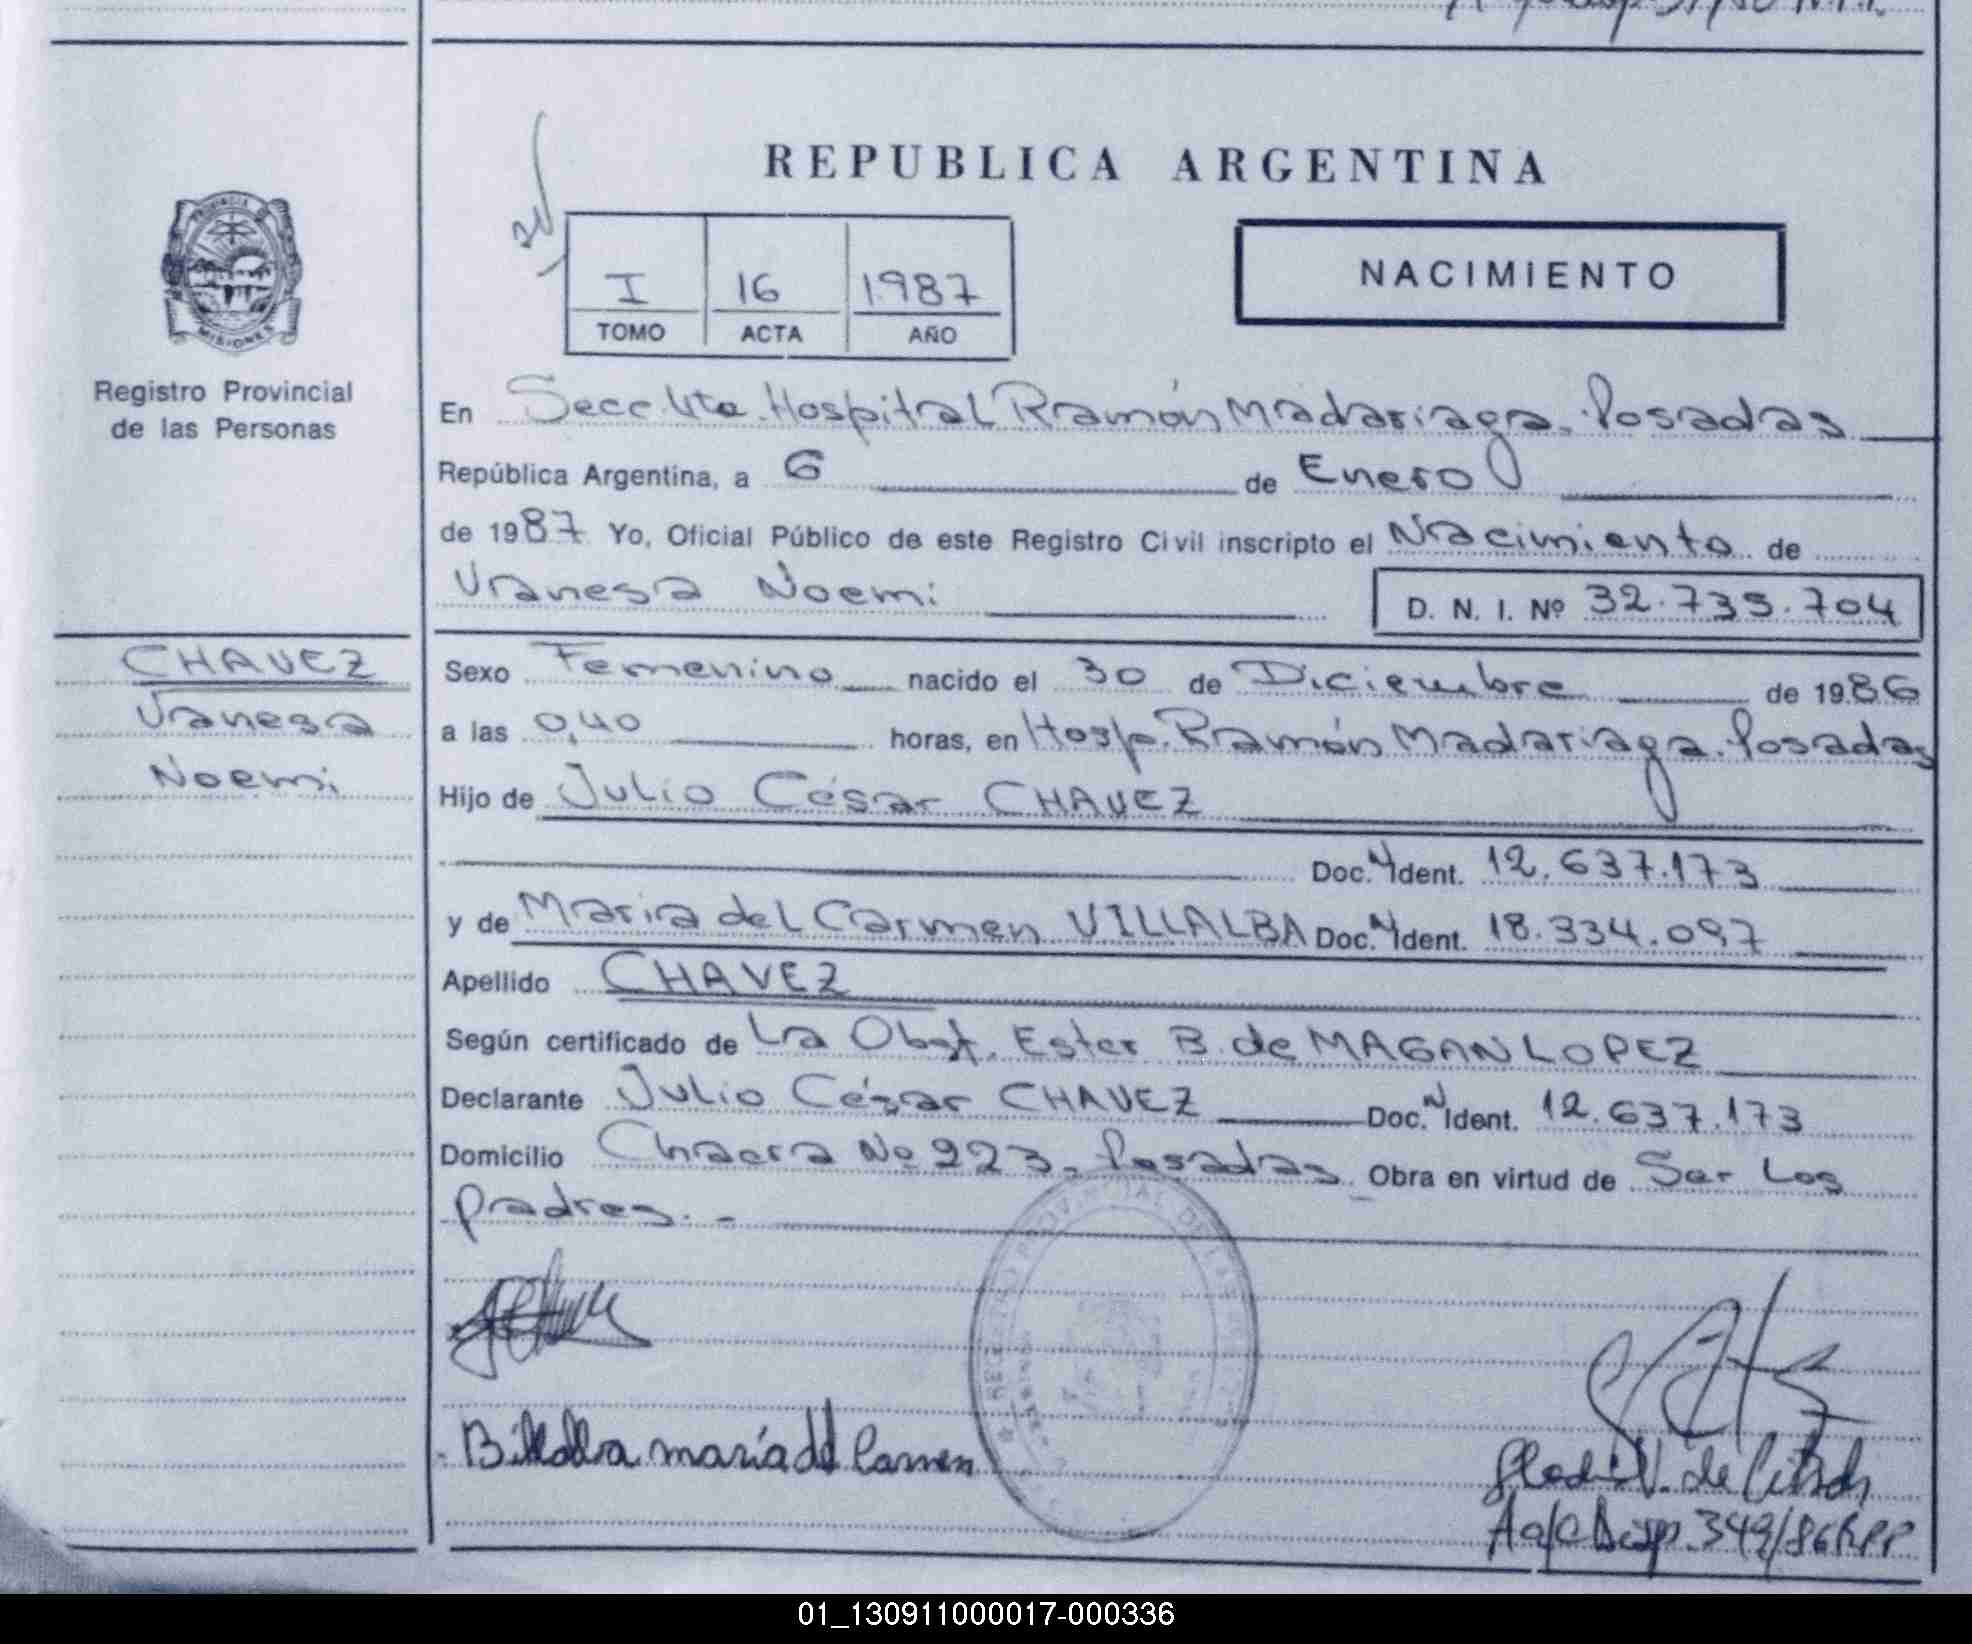 REPUBLICA ARGENTINA
PROVINCIA DE
MISIONES
Registro Provincial
de las Personas
I 16 1987
TOMO ACTA AÑO
NACIMIENTO
En Secc. 4ta. Hospital Ramón Madariaga. Posadas
República Argentina, a 6 de Enero
de 1987 Yo, Oficial Público de este Registro Civil inscripto el Nacimiento de
Vanesa Noemi D. N. I. Nº 32.735.704
CHAVEZ
Vanesa
Noemi
Sexo Femenino nacido el 30 de Diciembre de 1986
a las 0,40 horas, en Hosp. Ramón Madariaga. Posadas
Hijo de Julio César CHAVEZ
Doc. N Ident. 12.637.173
y de Maria del Carmen VILLALBA Doc. N Ident. 18.334.097
Apellido CHAVEZ
Según certificado de La Obst. Ester B. de MAGAN LOPEZ
Declarante Julio César CHAVEZ Doc. N Ident. 12.637.173
Domicilio Chacra No 223. Posadas Obra en virtud de Ser Los
padres. -
REGISTRO PROVINCIAL DE LAS PERSONAS
Billalba maría del Carmen
V. de
A/C Desp. 349/86 RPP
01_130911000017-000336